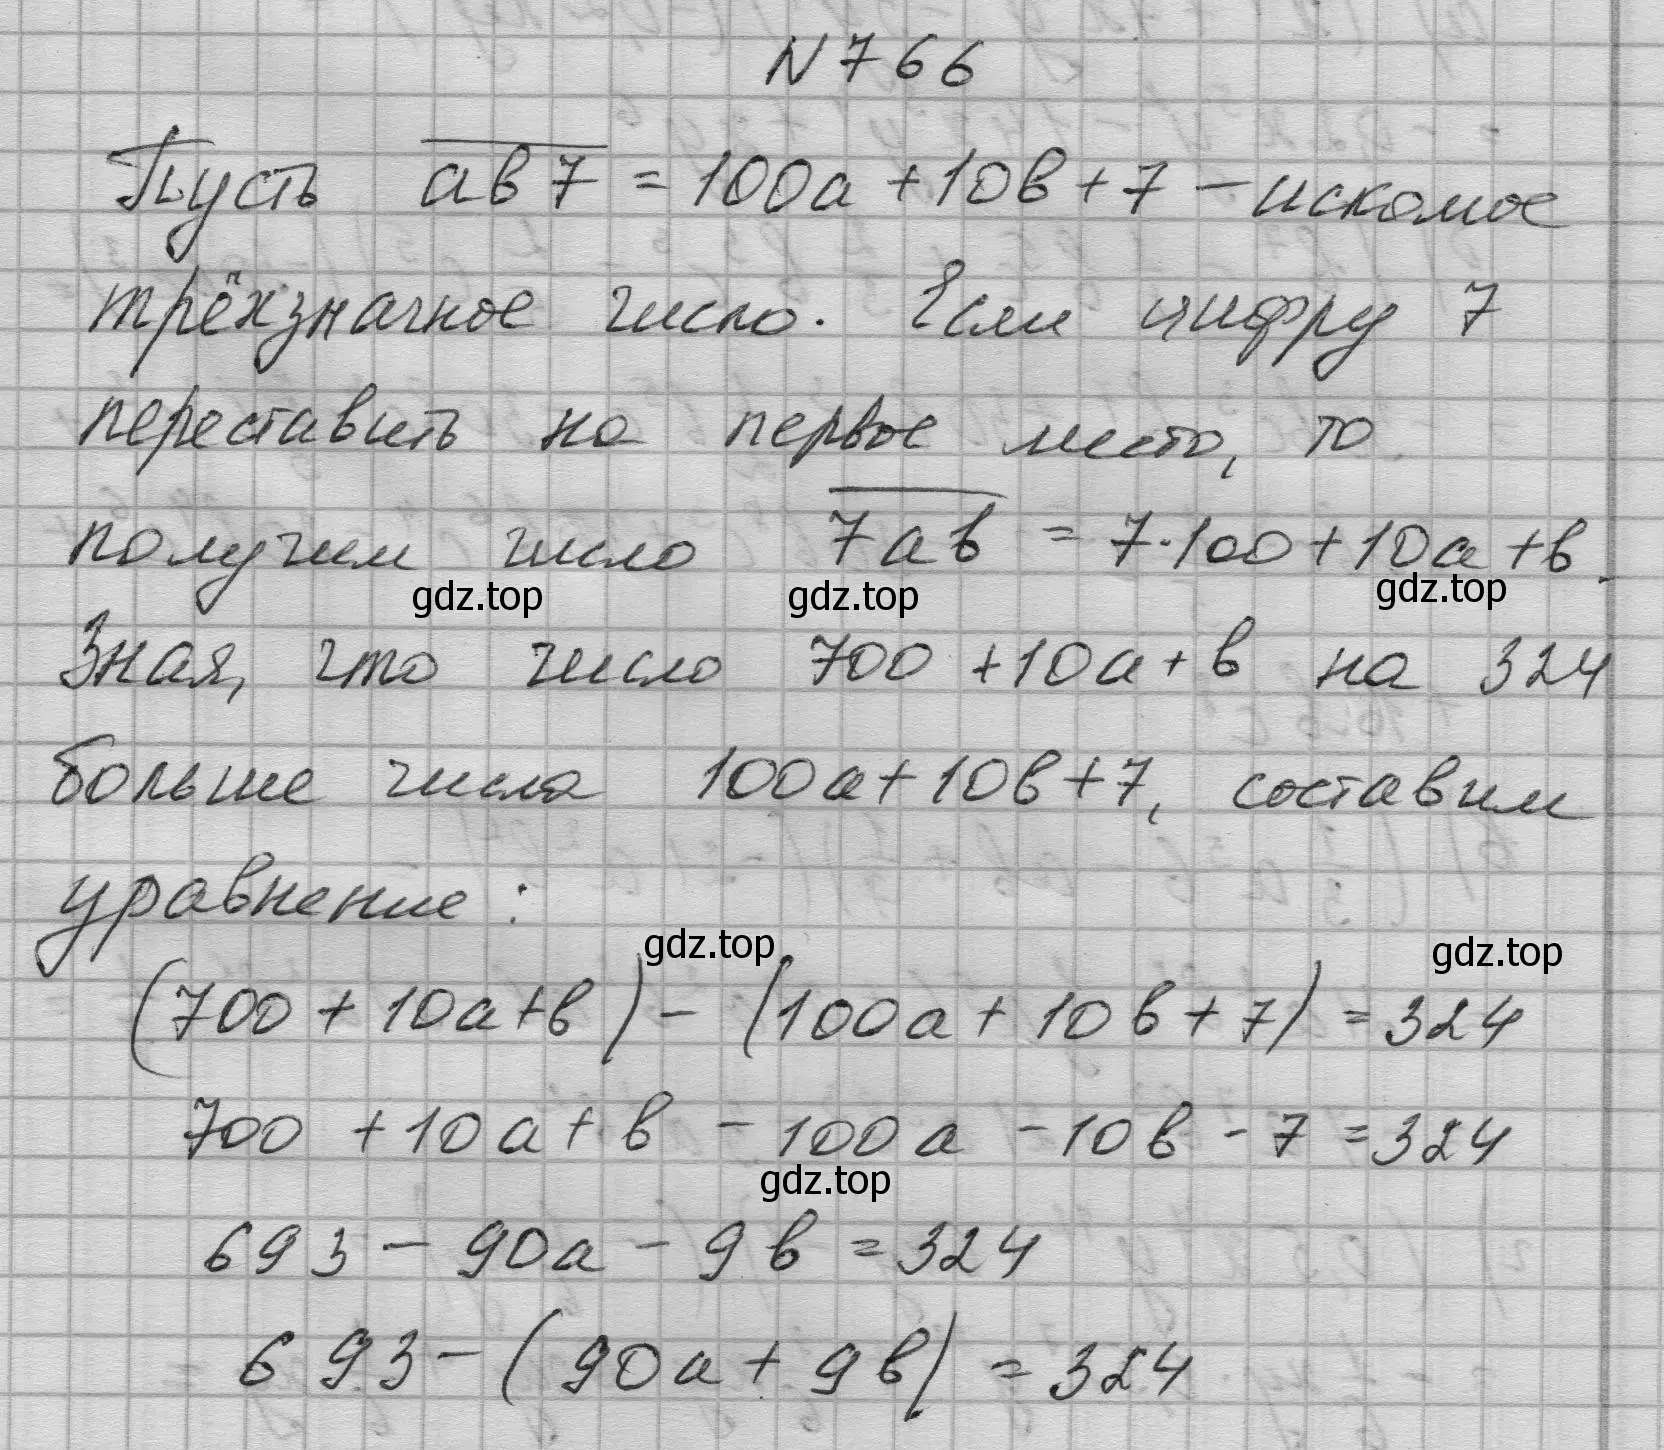 N 766
Пусть ав7 = 100а + 10в + 7 – искомое
трёхзначное число. Если цифру 7
переставить на первое место, то
получим число 7ав = 7·100 + 10а + в.
gdz.top gdz.top gdz.top
Зная, что число 700 + 10а + в на 324
больше числа 100а + 10в + 7, составим
уравнение:
gdz.top gdz.top
(700 + 10а + в) – (100а + 10в + 7) = 324
700 + 10а + в – 100а – 10в – 7 = 324
gdz.top
693 – 90а – 9в = 324
693 – (90а + 9в) = 324